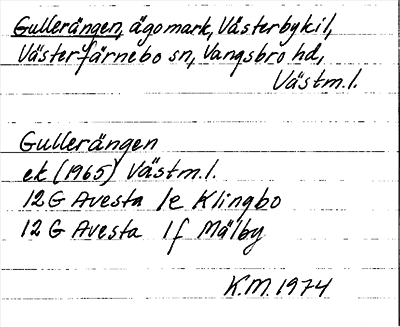 Gullerängen, ägomark, Västerbykil,
Västerfärnebo sn, Vangsbro hd,
Västm.l.
Gullerängen
ek (1965) Västm.l.
12 G Avesta 1e Klingbo
12 G Avesta 1f Mälby
K.M. 1974